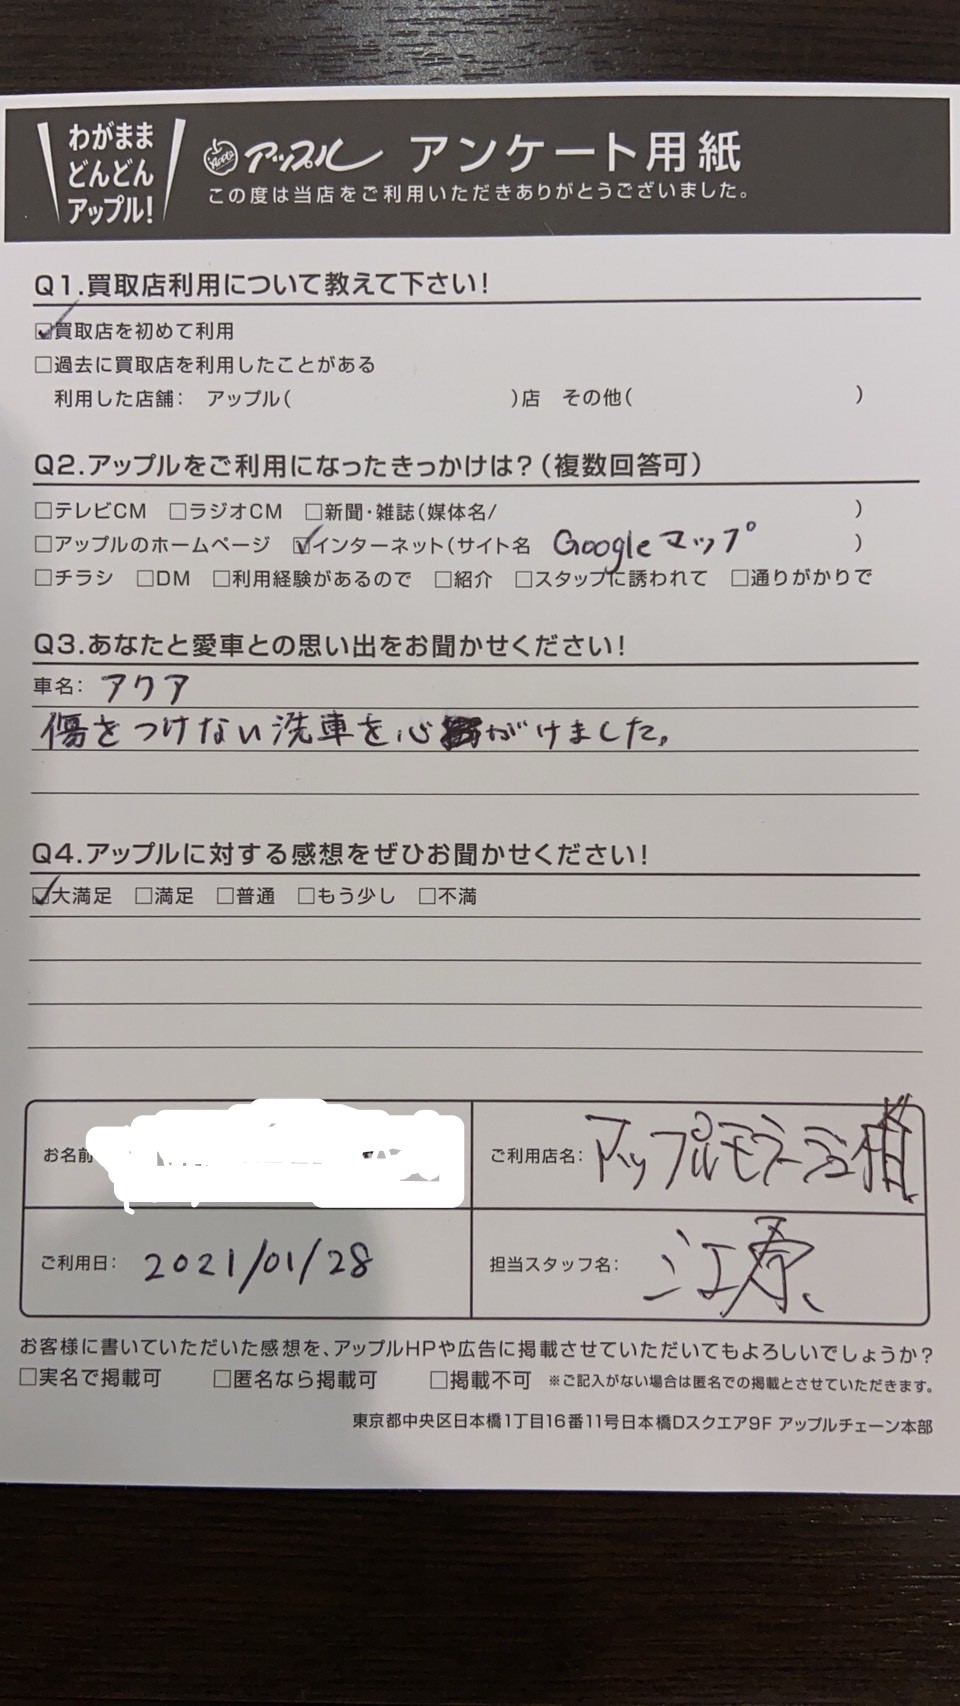 わがまま
どんどん
アップル!
アップル アンケート用紙
この度は当店をご利用いただきありがとうございました。
Q1.買取店利用について教えて下さい!
☑買取店を初めて利用
□過去に買取店を利用したことがある
利用した店舗: アップル( )店 その他( )
Q2.アップルをご利用になったきっかけは?(複数回答可)
□テレビCM □ラジオCM □新聞・雑誌(媒体名/ )
□アップルのホームページ ☑インターネット(サイト名 Googleマップ )
□チラシ □DM □利用経験があるので □紹介 □スタッフに誘われて □通りがかりで
Q3.あなたと愛車との思い出をお聞かせください!
車名: アクア
傷をつけない洗車を心がけました。
Q4.アップルに対する感想をぜひお聞かせください!
☑大満足 □満足 □普通 □もう少し □不満
お名前
ご利用店名: アップルモラージュ柏
ご利用日: 2021/01/28
担当スタッフ名: 江原
お客様に書いていただいた感想を、アップルHPや広告に掲載させていただいてもよろしいでしょうか?
□実名で掲載可 □匿名なら掲載可 □掲載不可 ※ご記入がない場合は匿名での掲載とさせていただきます。
東京都中央区日本橋1丁目16番11号日本橋Dスクエア9F アップルチェーン本部